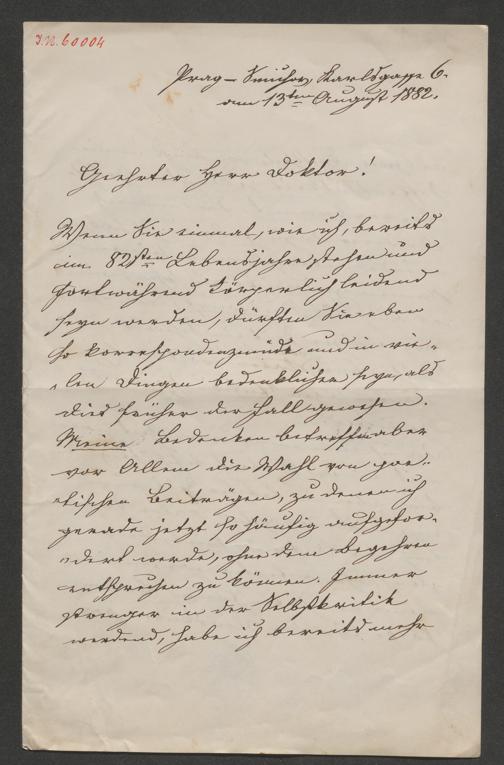 J.N. 60004
Prag – Smichov Karlsgasse 6.
am 13ten August 1882.
Geehrter Herr Doktor!
Wenn Sie einmal, wie ich, bereits
im 82sten Lebensjahre stehen und
fortwährend körperlich leidend
seyn werden, dürften Sie eben
so korrespondenzmüde und in vie-
len Dingen bedenklicher seyn, als
dies früher der Fall gewesen.
Meine Bedenken betreffen aber
vor Allem die Wahl von poe-
tischen Beiträgen, zu denen ich
gerade jetzt so häufig aufgefor-
dert werde, ohne dem Begehren
entsprechen zu können. Immer
strenger in der Selbstkritik
werdend, habe ich bereits mehr